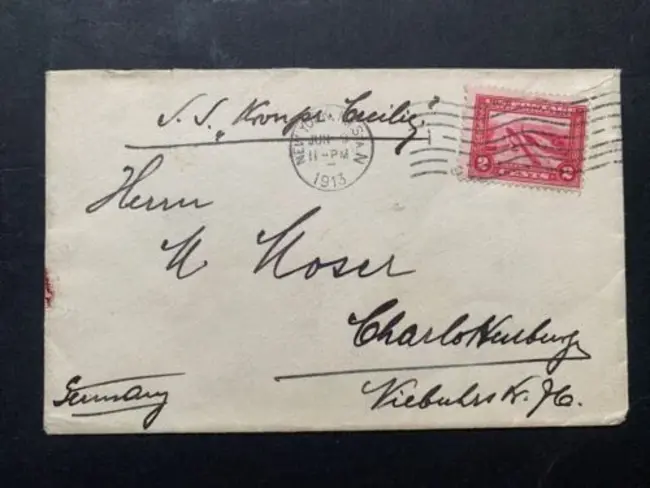 S. S. „Kronpr. Cecilie"
NEW YORK, N.Y. STA. N
JUN 9
11-PM
1913
2 CENTS 2
Herrn
M Moser
Charlottenburg
Niebuhrstr.
Germany